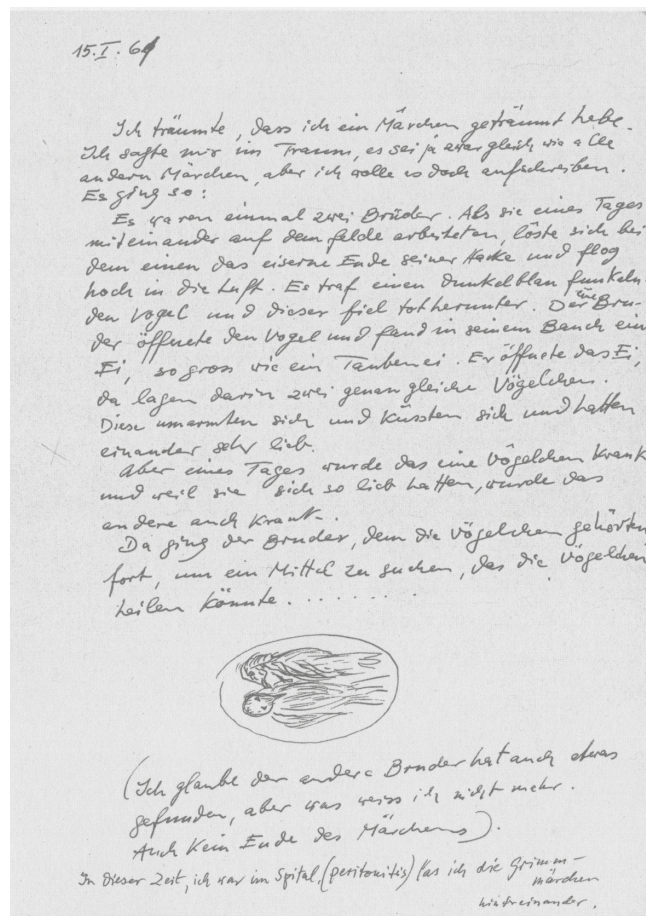 15.I.61
Ich träumte, dass ich ein Märchen geträumt habe.
Ich sagte mir im Traum, es sei ja zwar gleich wie alle
andern Märchen, aber ich wolle es doch aufschreiben.
Es ging so:
Es waren einmal zwei Brüder. Als sie eines Tages
miteinander auf dem Felde arbeiteten, löste sich bei
dem einen das eiserne Ende seiner Hacke und flog
hoch in die Luft. Es traf einen dunkelblau funkeln-
den Vogel und dieser fiel tot herunter. Der eine Bru-
der öffnete den Vogel und fand in seinem Bauch ein
Ei, so gross wie ein Taubenei. Er öffnete das Ei,
da lagen darin zwei genau gleiche Vögelchen.
Diese umarmten sich und küssten sich und hatten
einander sehr lieb.
Aber eines Tages wurde das eine Vögelchen krank
und weil sie sich so lieb hatten, wurde das
andere auch krank.
Da ging der Bruder, dem die Vögelchen gehörten
fort, um ein Mittel zu suchen, das die Vögelchen
heilen könnte........
(Ich glaube der andere Bruder hat auch etwas
gefunden, aber was weiss ich nicht mehr.
Auch kein Ende des Märchens).
In dieser Zeit, ich war im Spital, (peritonitis) las ich die Grimm-
märchen
hintereinander.